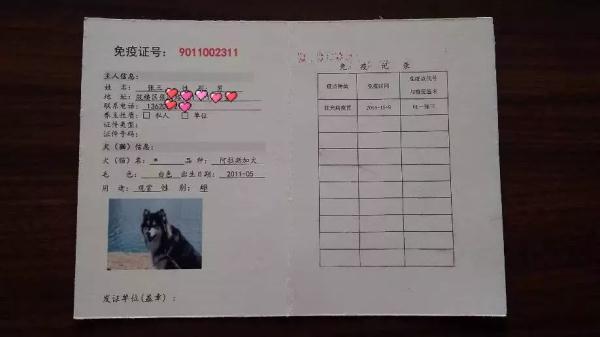 免疫证号: 9011002311
主人信息:
姓 名: 张三 性 别: 男
地 址: 鼓楼区
联系电话: 13620
养主性质: □ 私人 □ 单位
证件类型:
证件号码:
犬(猫)信息:
犬(猫)名: * 品 种: 阿拉斯加犬
毛 色: 白色 出生日期: 2011-05
用 途: 观赏 性 别: 雄
发证单位(盖章):
免 疫 记 录
疫苗种类 免疫时间 免疫点代号
与免疫签术
狂犬病疫苗